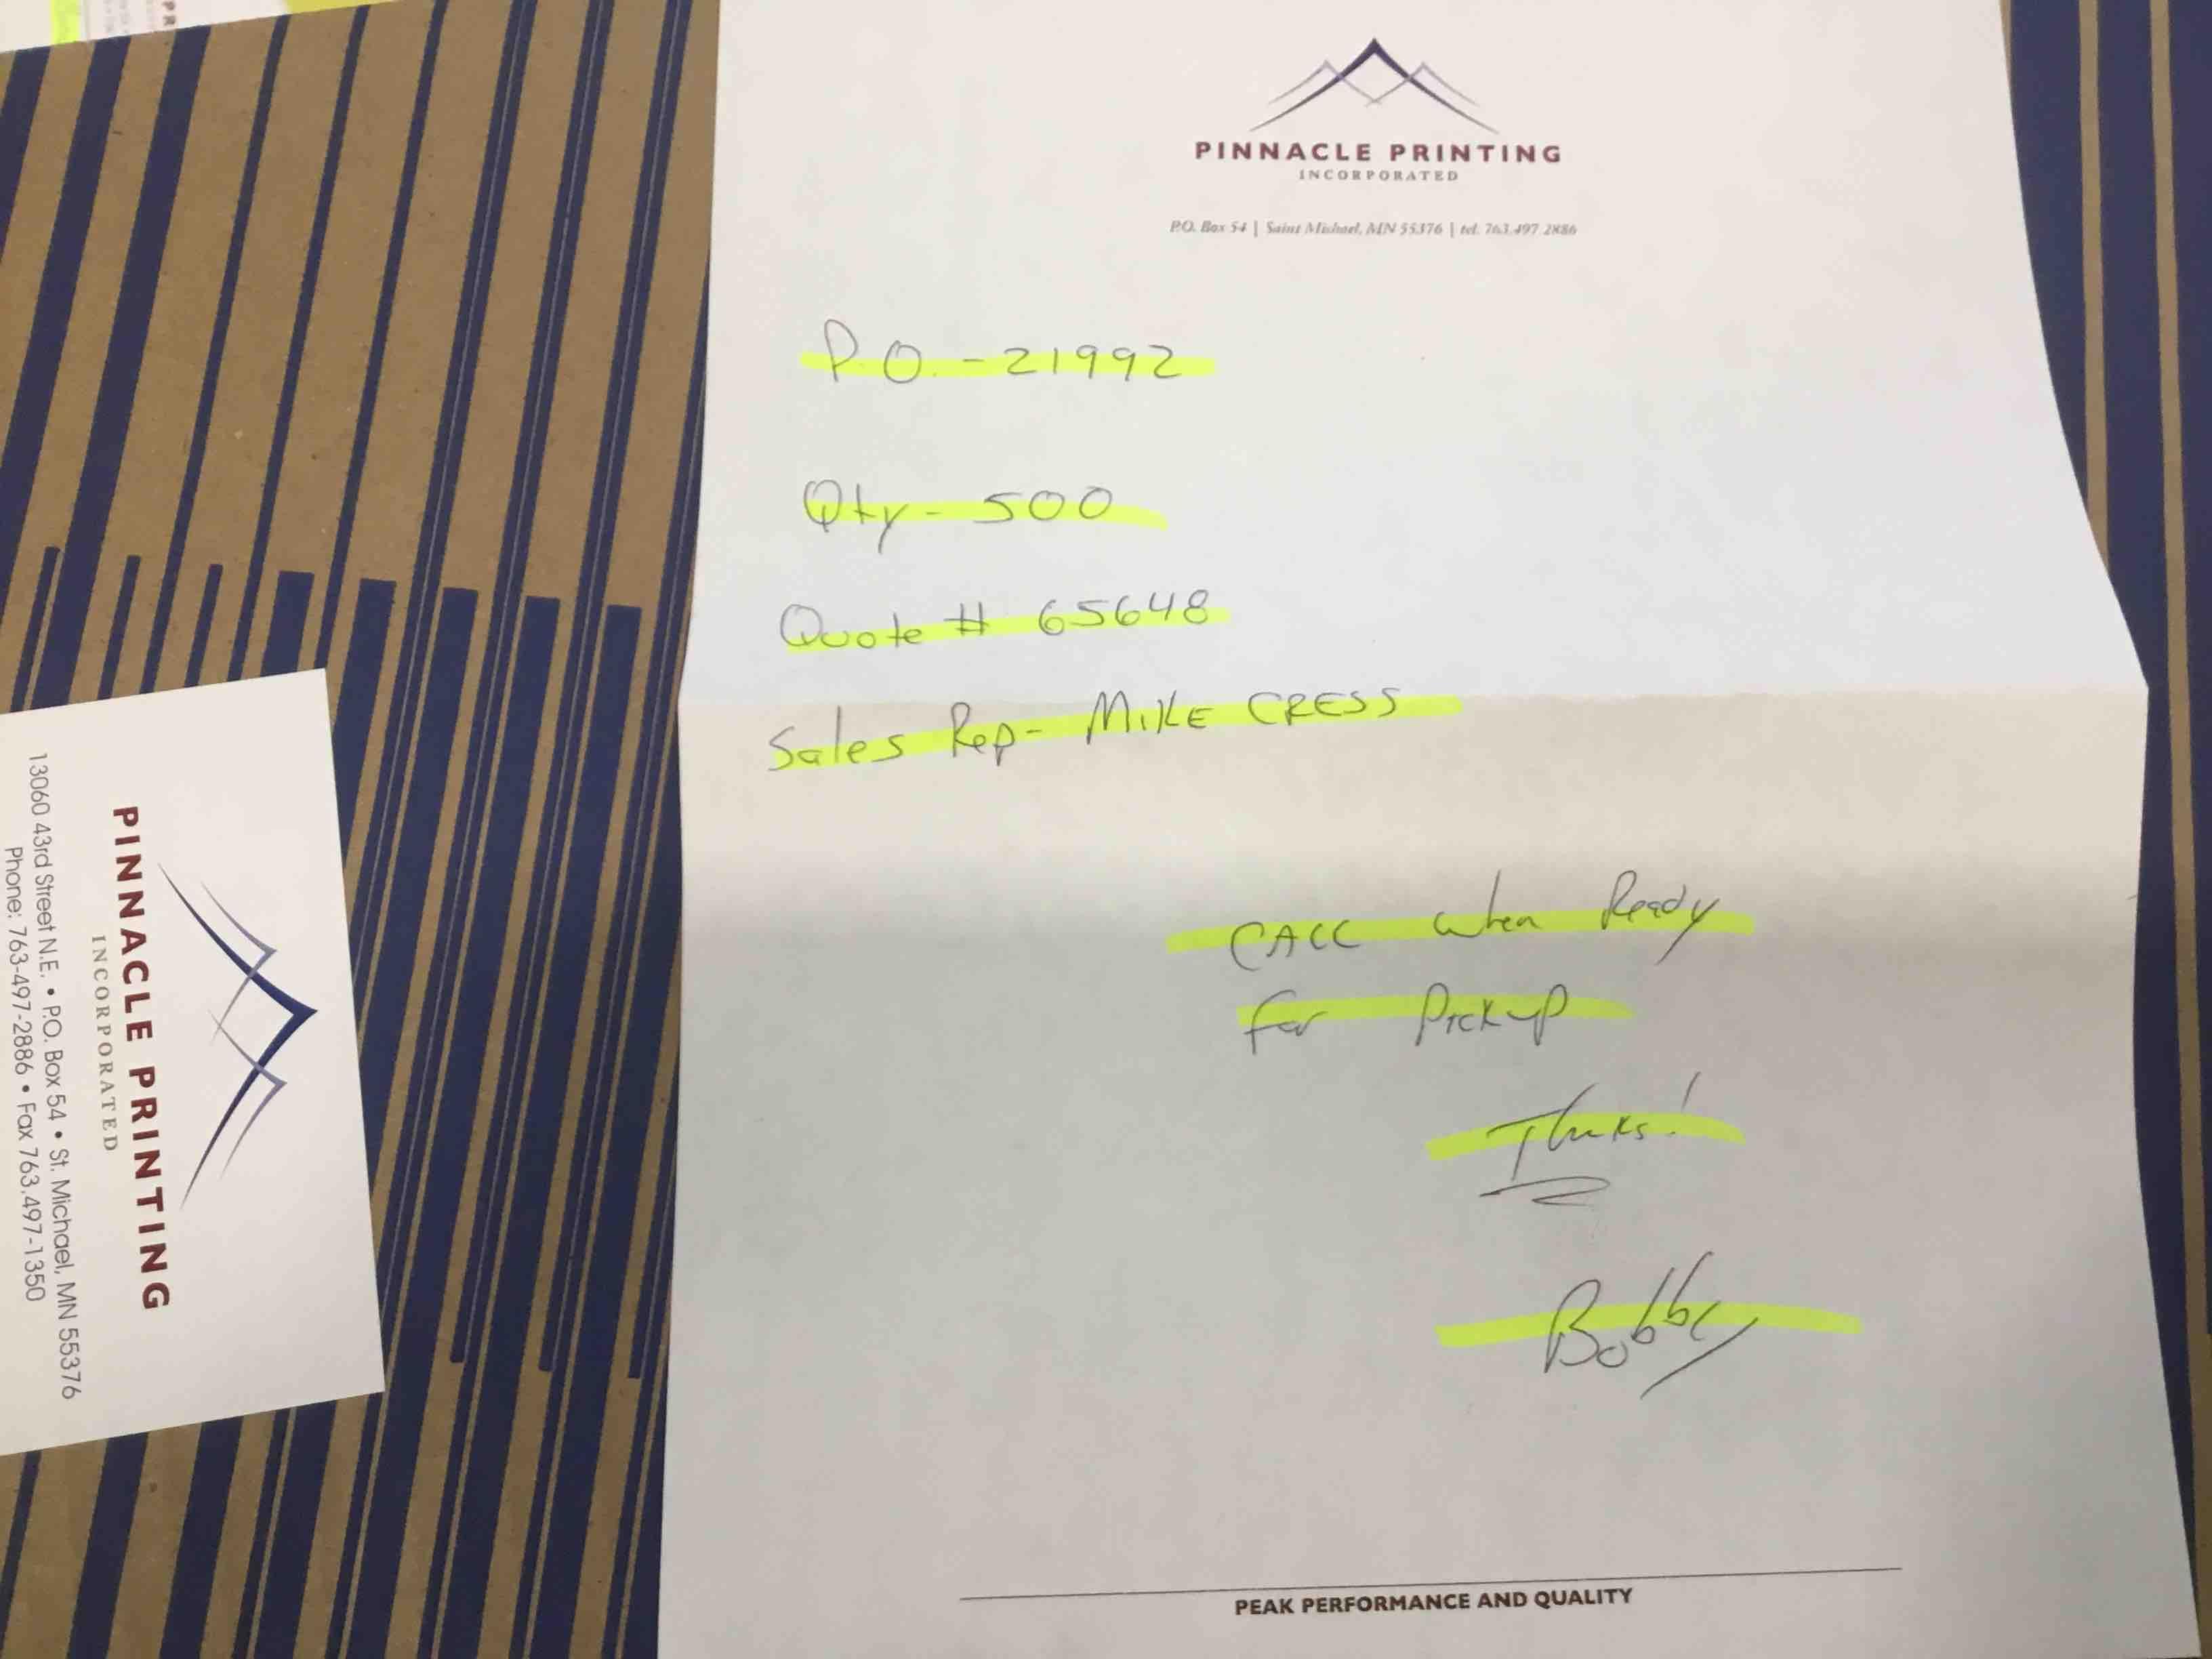 PINNACLE PRINTING
INCORPORATED
P.O. Box 54 | Saint Michael, MN 55376 | tel. 763.497.2886
P.O. - 21992
Qty - 500
Quote # 65648
Sales Rep - MIKE CRESS
CALL when Ready
for Pickup
Thnks!
Bobby
PEAK PERFORMANCE AND QUALITY
PINNACLE PRINTING
INCORPORATED
13060 43rd Street N.E. • P.O. Box 54 • St. Michael, MN 55376
Phone: 763-497-2886 • Fax 763.497-1350
PR